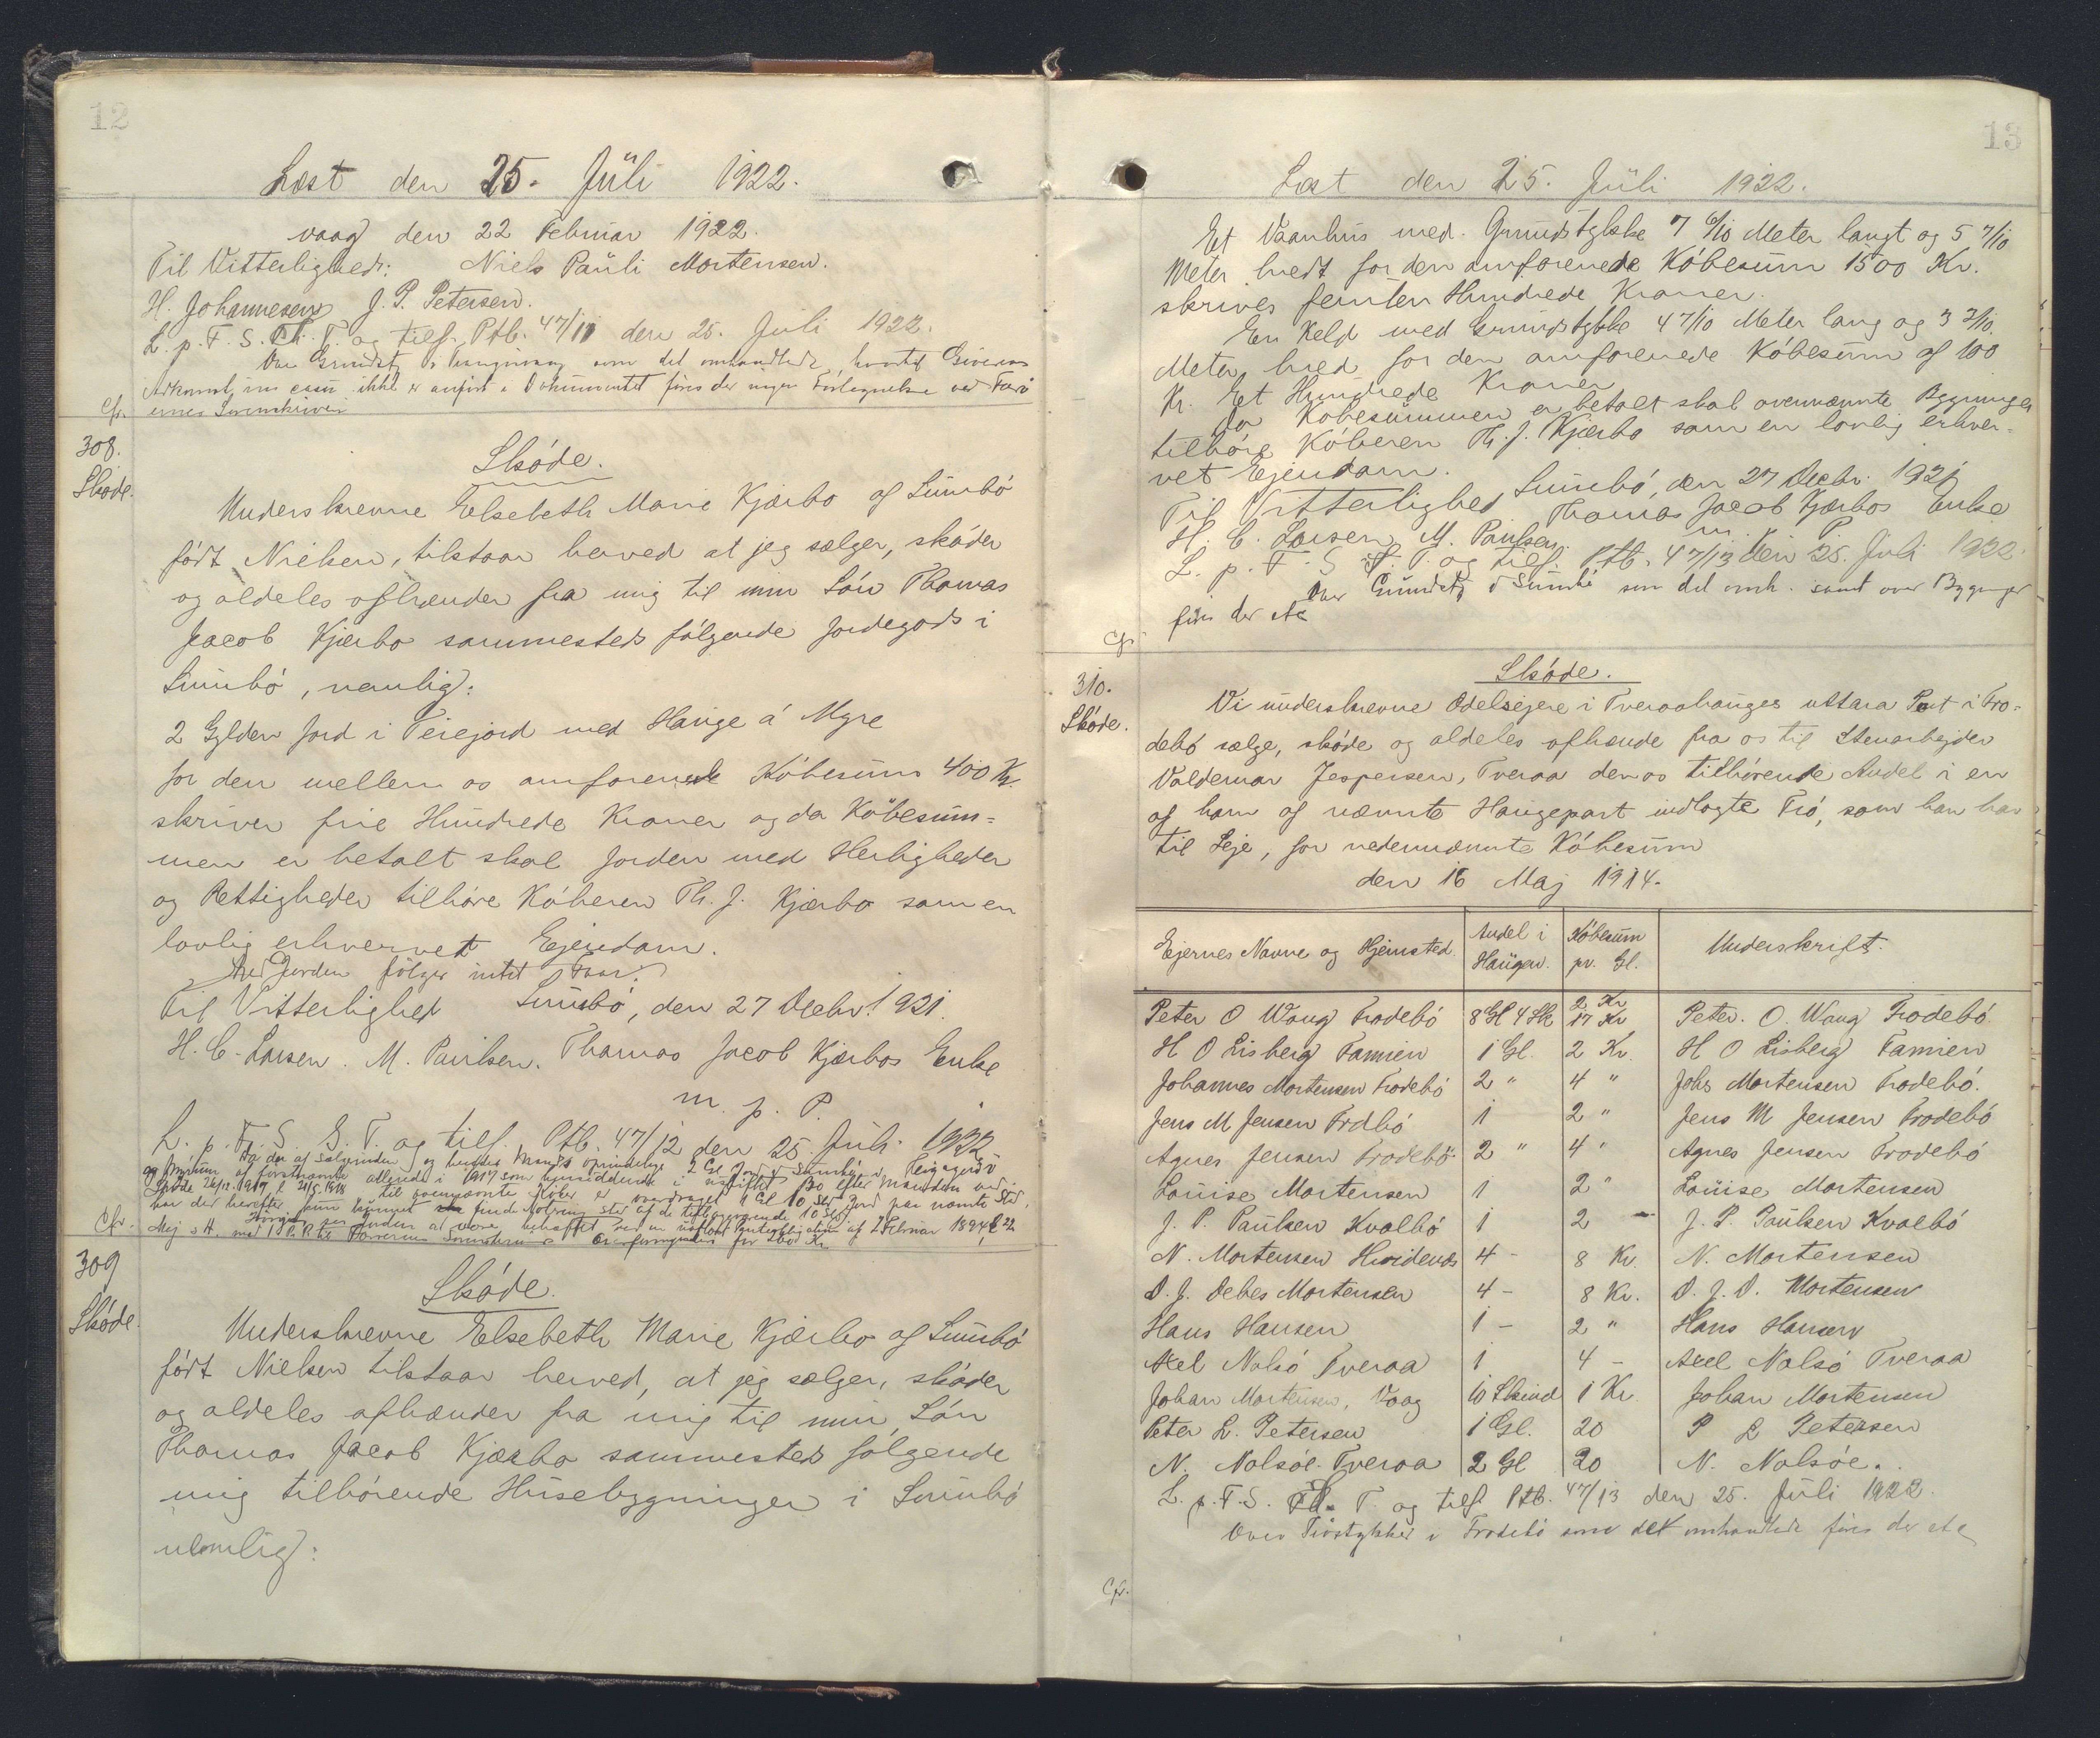 12
Læst den 25. Júli 1922.
vaag den 22 Februar 1922.
Til Vitterlighed: Niels Pauli Mortensen.
H. Johannesen J. P. Petersen.
L. p. F. S. Th. T. og tilf. Ptb. 47/11 den 25. Juli 1922.
Over Grundst. i som det omhandlede, hvortil Giverens
Adkomst, in casu ikke er anført i Dokumentet föres der ingen Fortegnelse ved Færö
ernes Sorenskriveri
Cfr.
308.
Skøde.
Sköde.
Underskrevne Elsebeth Marie Kjærbo af Sumbö
född Nielsen, tilstaar herved at jeg sælger, sköder
og aldeles afhænder fra mig til min Sön Thomas
Jacob Kjærbo sammesteds fölgende Jordegods i
Sumbö, nemlig:
2 Gylden Jord i Teiejord med Hauge á Myre
for den mellem os omforenede Köbesum 400 Kr.
skriver fire Hundrede Kroner og da Köbesum=
men er betalt skal Jorden med Herligheder
og Rettigheder tilhöre Köberen Th. J. Kjærbo som en
lovlig erhvervet Ejendom.
Med Jorden fölger intet Faar.
Til Vitterlighed Sumbö, den 27 Decbr. 1921.
H. C. Larsen. M. Paulsen. Thomas Jacob Kjærbos Enke
m. p. P.
L. p. F. S. S. T. og tilf. Ptb. 47/12 den 25. Juli 1922
Cfr.
309
Sköde.
Sköde.
Underskrevne Elsebeth Marie Kjærbo af Sumbö
född Nielsen tilstaar herved, at jeg sælger, sköder
og aldeles afhænder fra mig til min Sön
Thomas Jacob Kjærbo sammesteds fölgende
mig tilhörende Húsebygninger i Sumbö
nemlig:
13
Læst den 25. Júli 1922.
Et Vaanhus med Grundstykke 7 6/10 Meter langt og 5 7/10
Meter bredt for den omforenede Köbesum 1500 Kr.
skrives femten Hundrede Kroner.
En Keld med Grundstykke 4 7/10 Meter lang og 3 2/10
Meter bred for den omforenede Köbesum af 100
Kr. Et Hundrede Kroner
Da Köbesummen er betalt skal ovennævnte Bygninger
tilhöre Köberen Th. J. Kjærbo som en lovlig erhver=
vet Ejendom.
Sumbö, den 27 Decbr. 1921
Til Vitterlighed Thomas Jacob Kjærbos Enke
H. C. Larsen M. Paulsen. m. p. P.
L. p. F. S. S. T. og tilf. Ptb. 47/13 den 25. Juli 1922.
Over Grundst. i Sumbö som det omh. samt over Bygninger
föres der etc
Cfr.
310.
Sköde.
Sköde.
Vi underskrevne Odelsejere i Tveraahauges uttara Part i Fro=
debö sælge, sköde og aldeles afhænde fra os til Stenarbejder
Valdemar Jespersen, Tveraa den os tilhörende Andel i en
af ham af nævnte Haugepart indlagte Trö, som han har
til Leje, for nedennævnte Köbesum
den 16 Maj 1914.
Ejernes Navne og Hjemsted. Andel i Haugen. Köbesum pr. Gl. Underskrift:
Peter O Waag Frodebö 8 Gl 4 Sk 2 Kr 17 Kr Peter. O. Waag Frodebö
H O Lisberg Famien 1 Gl. 2 Kr. H O Lisberg Famien
Johannes Mortensen Frodebö 2 " 4 " Johs Mortensen Frodebö.
Jens M Jensen Frdbö 1 2 " Jens M Jensen Frodebö
Agnes Jensen Frodebö 2 " 4 " Agnes Jensen Frodebö
Louise Mortensen 1 2 " Louise Mortensen
J. P. Paulsen Kvalbö 1 2 - J. P. Paulsen Kvalbö
N. Mortensen Hvidenæs 4 - 8 Kr. N. Mortensen
D. J. Debes Mortensen 4 - 8 Kr. D. J. D. Mortensen
Hans Hansen 1 - 2 " Hans Hansen
Axel Nolsö Tveraa 1 4 - Axel Nolsö Tveraa
Johan Mortensen, Vaag 10 Skind 1 Kr Johan Mortensen
Peter L. Petersen 1 Gl. 20 P L Petersen
N. Nolsöe. Tveraa 2 Gl 20 N. Nolsöe.
L. p. F. S. Th. T. og tilf Ptb. 47/13 den 25. Júli 1922.
Over Tröstykket i Frodebö som det omhandlede föres der etc
Cfr.